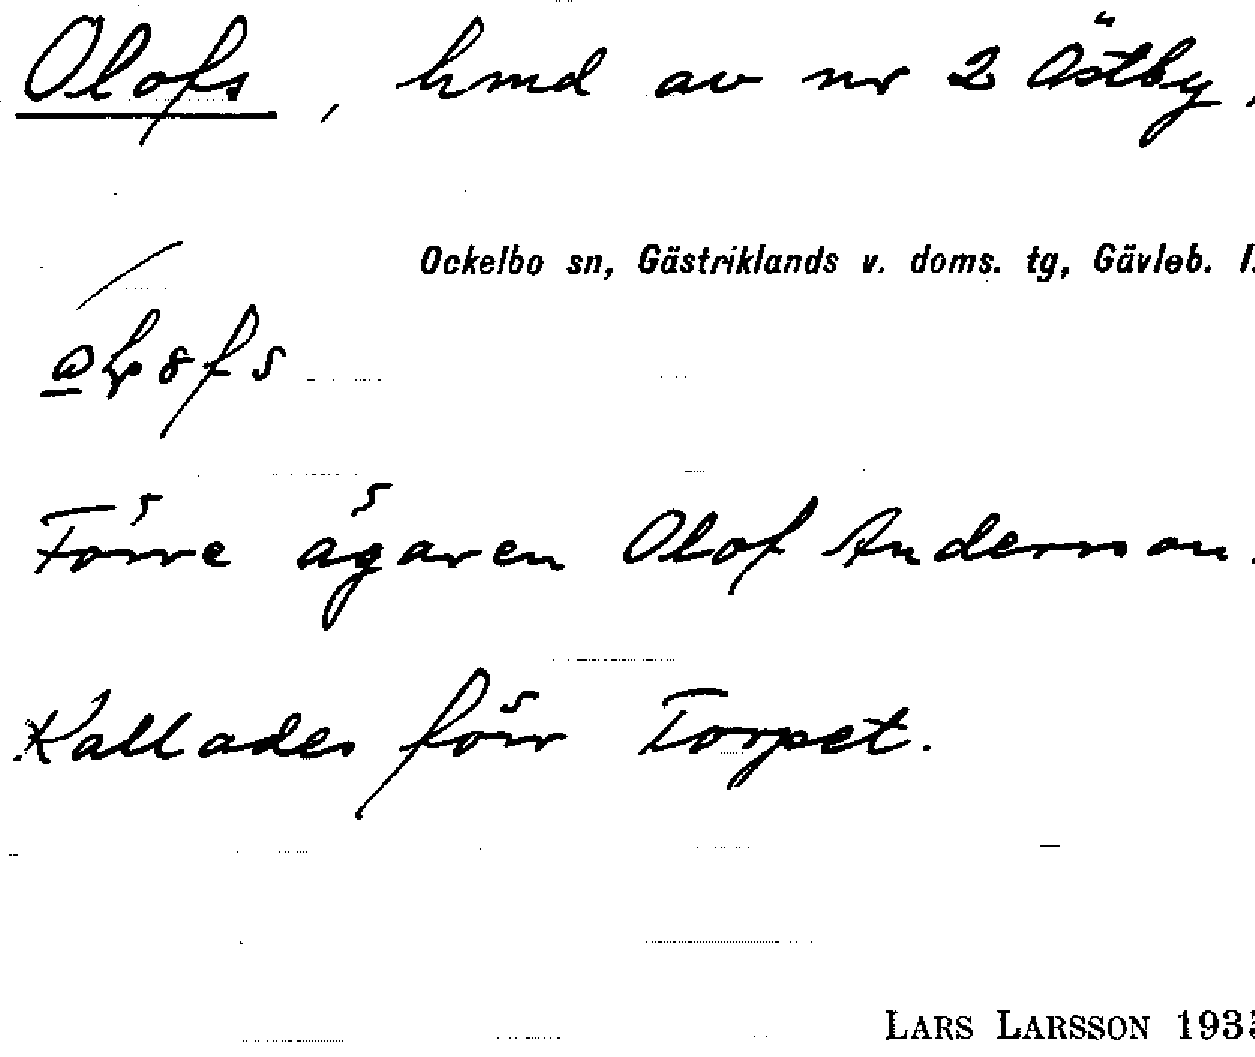 Olofs, hmd av nr 2 Östby.
Ockelbo sn, Gästriklands v. doms. tg, Gävleb. l.
Förre ägaren Olof Andersson.
Kallades förr Torpet.
LARS LARSSON 1935